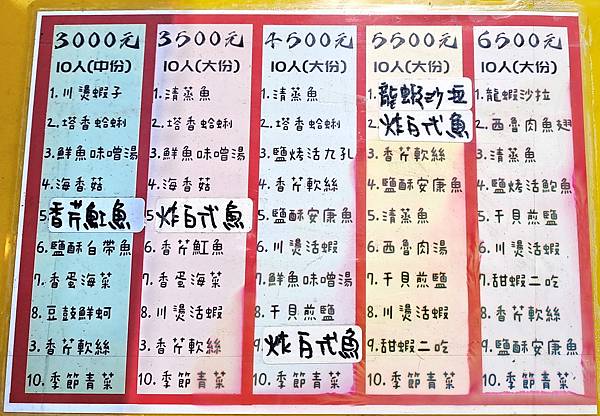 3000元
10人(中份)
1. 川燙蝦子
2. 塔香蛤蜊
3. 鮮魚味噌湯
4. 海香菇
5 香芹魟魚
6. 鹽酥白帶魚
7. 香蛋海菜
8. 豆鼓鮮蚵
3. 香芹軟絲
10. 季節青菜
3500元
10人(大份)
1. 清蒸魚
2. 塔香蛤蜊
3. 鮮魚味噌湯
4. 海香菇
5 炸百代魚
6. 香芹魟魚
7. 香蛋海菜
8. 川燙活蝦
3. 香芹軟絲
10. 季節青菜
4500元
10人(大份)
1. 清蒸魚
2. 塔香蛤蜊
3. 鹽烤活九孔
4. 香芹軟絲
5. 鹽酥安康魚
6. 川燙活蝦
7. 鮮魚味噌湯
8. 干貝煎鹽
9 炸百代魚
10. 季節青菜
5500元
10人(大份)
1. 龍蝦沙拉
炸百代魚
3. 香芹軟絲
4. 鹽酥安康魚
5. 清蒸魚
6. 西魯肉湯
7. 干貝煎鹽
8. 川燙活蝦
9. 甜蝦二吃
10. 季節青菜
6500元
10人(大份)
1. 龍蝦沙拉
2. 西魯肉魚翅
3. 清蒸魚
4. 鹽烤活鮑魚
5. 干貝煎鹽
6. 川燙活蝦
7. 甜蝦二吃
8. 香芹軟絲
9. 鹽酥安康魚
10. 季節青菜